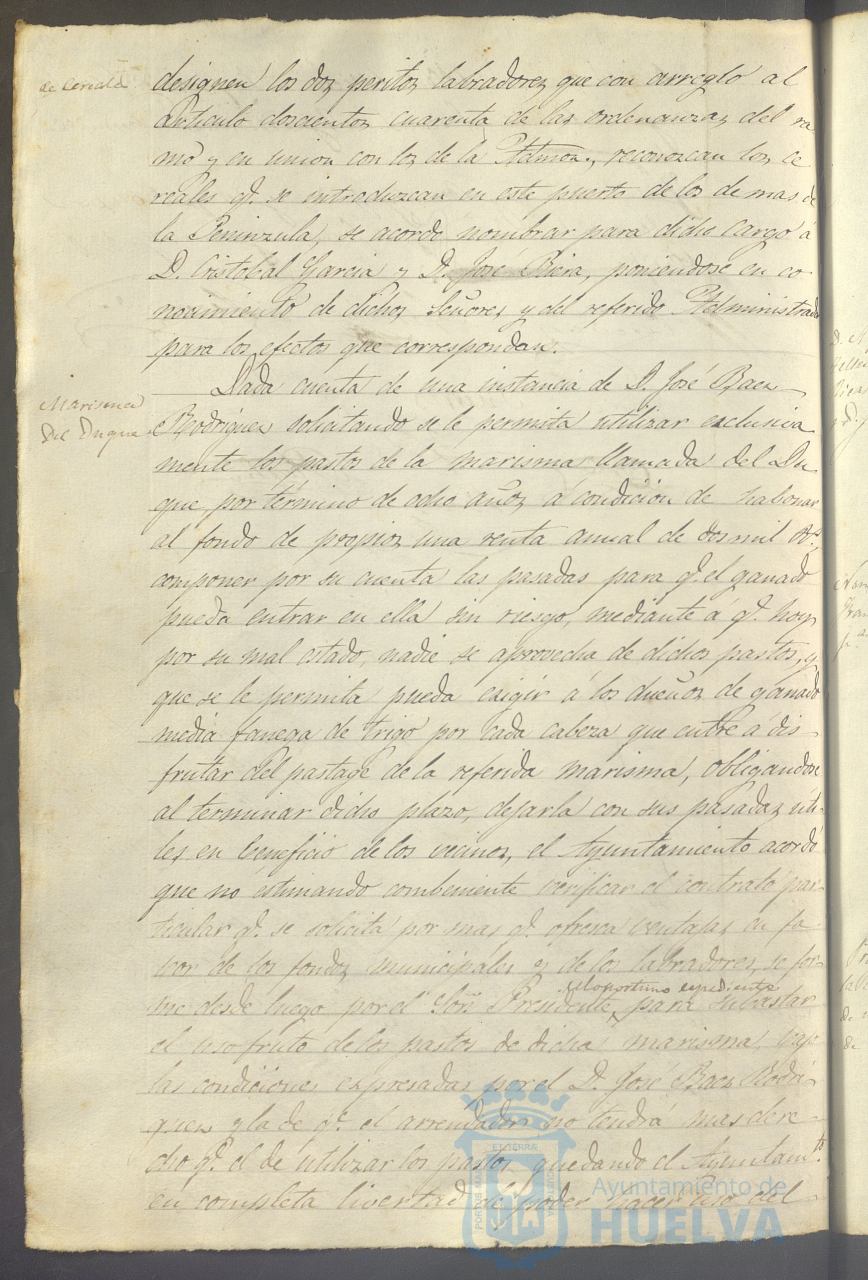 de Cereales
designen los dos peritos labradores que con arreglo al
Articulo doscientos cuarenta de las ordenanzas del ra-
mo y en union con los de la reconozcan los ce
reales q.e se introduzcan en este puerto de los demas de
la Peninzula, se acordó nombrar para dicho cargo á
D. Cristobal Garcia y D. Jose Riera, poniendose en co
nocimiento de dichos Señores y del referido Administrador
para los efectos que correspondan.
Marisma
del Duque
Dada cuenta de una instancia de D. José Baez
Rodriguez solicitando se le permita utilizar exclusiva
mente los pastos de la marisma llamada del Du
que, por término de ocho años á condicion de habonar
al fondo de propios una renta anual de dos mil R.s
componer por su cuenta las pasadas para q.e el ganado
pueda entrar en ella sin riesgo, mediante á q.e hoy,
por su mal estado, nadie se aprovecha de dichos pastos, y
que se le permita pueda exigir á los dueños de ganado
media fanega de trigo por cada cabeza que entre a dis-
frutar del pastage de la referida marisma, obligandose
al terminar dicho plazo, dejarla con sus pasadas úti-
les en beneficio de los vecinos, el Ayuntamiento acordó
que no estimando combeniente verificar el contrato par-
ticular q.e se solicita por mas q.e ofresca ventajas en fa-
vor de los fondos municipales y de los labradores, se for-
me desde luego por el Señor Presidente, para subastar
el oportuno expediente
el uso fruto de los pastos de dicha marisma vajo
las condiciones expresadas por el D. José Baez Rodri-
guez y la de q.e el arrendador no tendrá mas dere-
cho q.e el de utilizar los pastos, quedando el Ayuntam.to
en completa livertad de poder hacer uso del
Ayuntamiento de
HUELVA